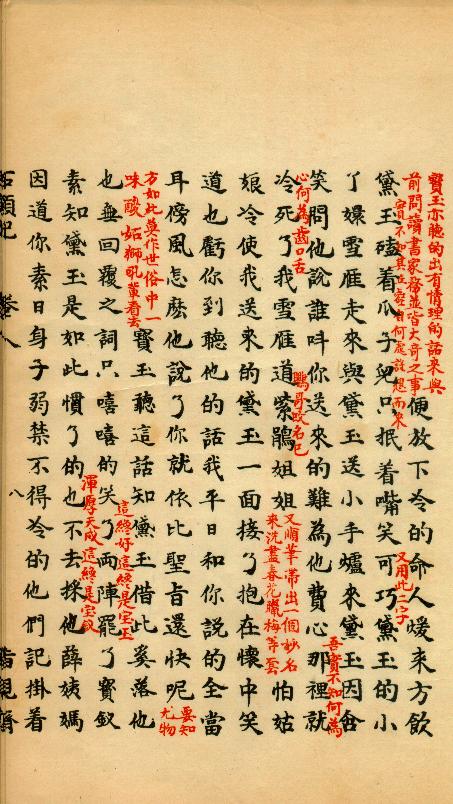 寶玉亦聽的出有情理的話來與
前問讀書家務並皆大奇之事
便放下冷的命人煖來方飲
又用此二字
實不知其丘壑自何處設想而來
黛玉磕着瓜子兒只抿着嘴笑可巧黛玉的小
了嬛雪雁走來與黛玉送小手爐來黛玉因含
笑問他說誰呌你送來的難為他費心那裡就
吾實不知何為
心何為齒口舌
冷死了我雪雁道紫鵑姐姐
鸚哥改名已
又順筆帶出一個妙名
來洗盡春花臘梅等套
怕姑
娘冷使我送來的黛玉一面接了抱在懷中笑
道也虧你到聽他的話我平日和你說的全當
耳傍風怎麽他說了你就依比聖旨還快呢
要知
尤物
方如此莫作世俗中一
味酸妬獅吼輩看去
寶玉聽這話知黛玉借此奚落他
也無回覆之詞只嘻嘻的笑了兩陣罷了寶釵
這纔好這纔是宝玉
素知黛玉是如此慣了的也不去採他薛姨媽
渾厚天成這纔是宝釵
因道你素日身子弱禁不得冷的他們記掛着
石頭記
卷八
八
脂硯齋